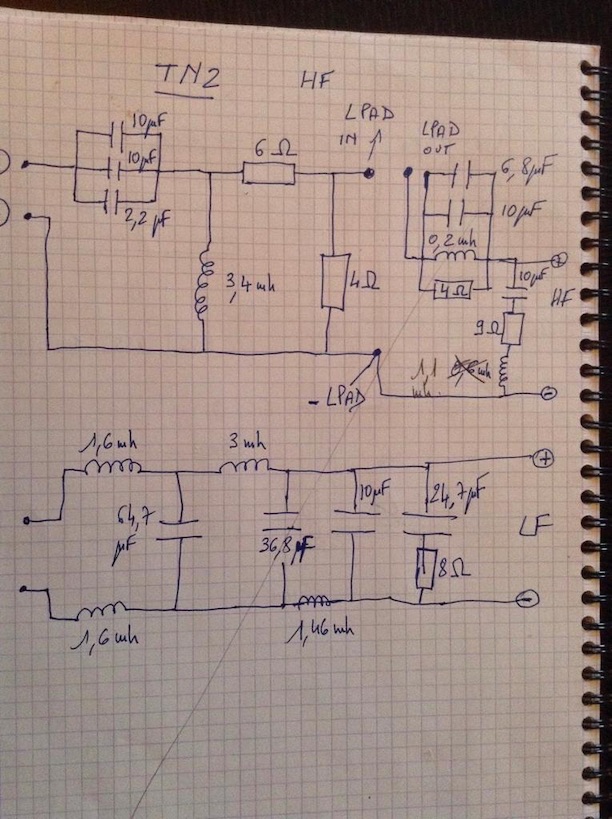 TN2
HF
LPAD
IN
LPAD
OUT
10µF
10µF
2,2 µF
6 Ω
3,4 mh
4Ω
6,8µF
10µF
0,2 mh
4Ω
+
10µF
HF
9Ω
1,1
mh
- LPAD
-
1,6 mh
3 mh
64,7
µF
36,8 µF
10µF
24,7µF
8Ω
+
LF
-
1,6 mh
1,46 mh